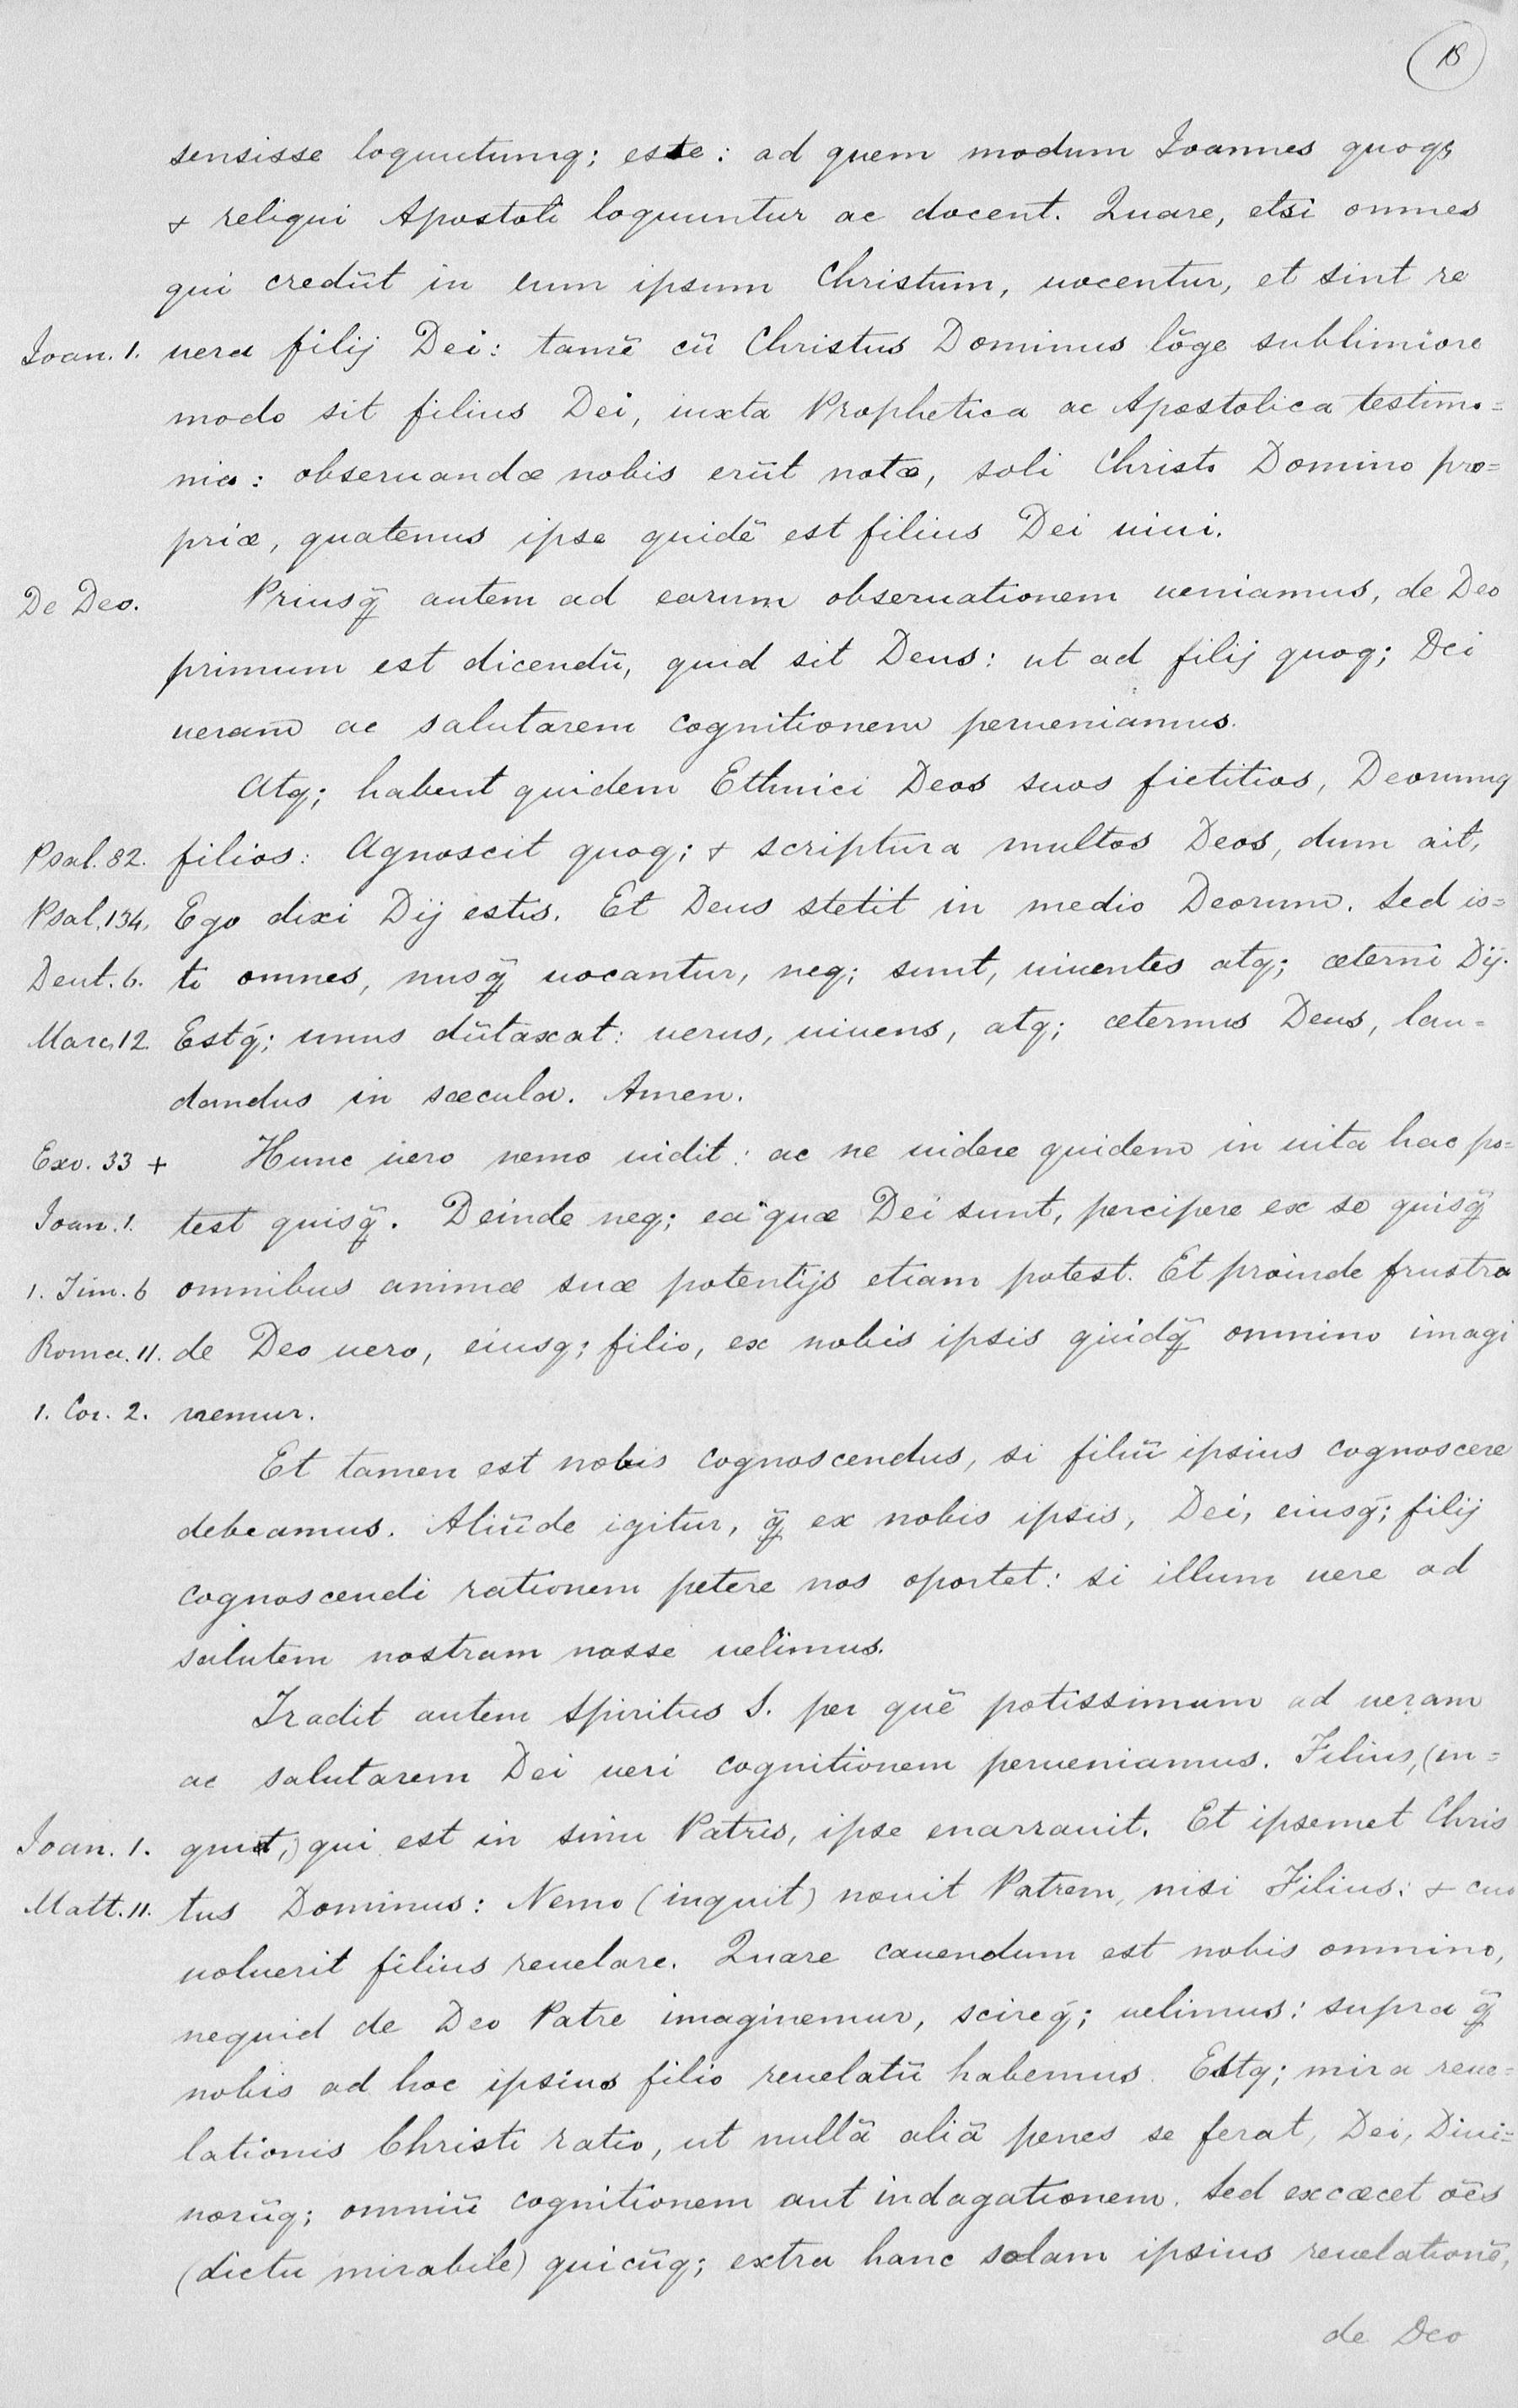 18
sensisse loquutumq; este: ad quem modum Ioannes quoqʒ
& reliqui Apostoli loquuntur ac docent. Quare, etsi omnes
qui credũt in eum ipsum Christum, uocentur, et sint re
Ioan. 1. uera filij Dei: tamẽ cũ Christus Dominus lõge sublimiore
modo sit filius Dei, iuxta Prophetica ac Apostolica testimo=
nia: obseruandæ nobis erũt notæ, soli Christo Domino pro=
priæ, quatenus ipse quidẽ est filius Dei uiui.
De Deo. Priusq̃ autem ad earum obseruationem ueniamus, de Deo
primum est dicendũ, quid sit Deus: ut ad filij quoq; Dei
ueram ac salutarem cognitionem perueniamus.
Atq; habent quidem Ethnici Deos suos fictitios, Deorumq
Psal. 82. filios: Agnoscit quoq; & scriptura multos Deos, dum ait,
Psal. 134. Ego dixi Dij estis. Et Deus stetit in medio Deorum. Sed is=
Deut. 6. ti omnes, nusq̃ uocantur, neq; sunt, uiuentes atq; æterni Dij.
Marc. 12. Estq́; unus dũtaxat: uerus, uiuens, atq; æternus Deus, lau=
dandus in sæcula. Amen.
Exo. 33 + Hunc uero nemo uidit: ac ne uidere quidem in uita hac po=
Ioan. 1. test quisq̃. Deinde neq; ea quæ Dei sunt, percipere ex se quisq̃
1. Tim. 6 omnibus animæ suæ potentijs etiam potest. Et proinde frustra
Roma. 11. de Deo uero, eiusq; filio, ex nobis ipsis quidq̃ omnino imagi
1. Cor. 2. nemur.
Et tamen est nobis cognoscendus, si filiũ ipsius cognoscere
debeamus. Aliũde igitur, q̃ ex nobis ipsis, Dei, eiusq́; filij
cognoscendi rationem petere nos oportet: si illum uere ad
salutem nostram nosse uelimus.
Tradit autem Spiritus S. per quẽ potissimum ad ueram
ac salutarem Dei ueri cognitionem perueniamus. Filius, (in=
Ioan. 1. quit,) qui est in sinu Patris, ipse enarrauit. Et ipsemet Chris
Matt. 11. tus Dominus: Nemo (inquit) nouit Patrem, nisi Filius: & cuo
uoluerit filius reuelare. Quare cauendum est nobis omnino,
nequid de Deo Patre imaginemur, scireq́; uelimus: supra q̃
nobis ad hoc ipsius filio reuelatũ habemus. Estq; mira reue=
lationis Christi ratio, ut nullã aliã penes se ferat, Dei, Diui=
norũq; omniũ cognitionem aut indagationem. Sed excæcet oẽs
(dictu mirabile) quicũq; extra hanc solam ipsius reuelationẽ,
de Deo